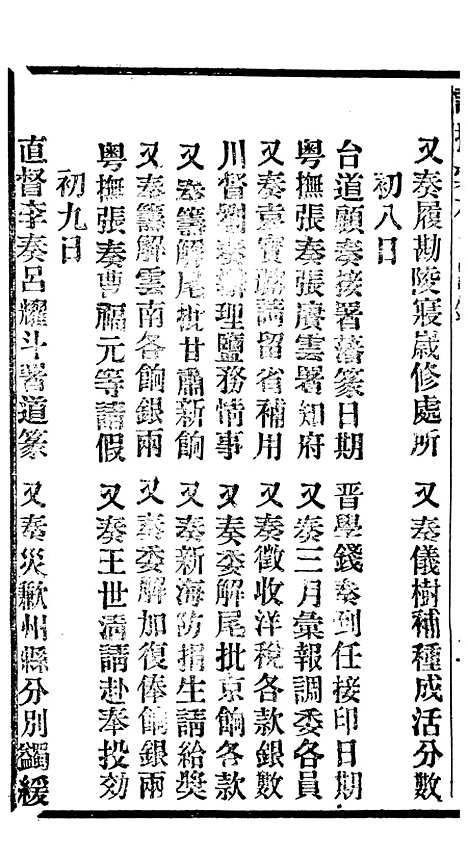 又奏履勘陵寢歲修處所　又奏儀樹補種成活分數
初八日
台道顧奏接署藩篆日期　晋學錢奏到任接印日期
粵撫張奏張賡雲署知府　又奏三月彙報調委各員
又奏袁寶璐請留省補用　又奏徵收洋稅各款銀數
川督劉奏辦理鹽務情事　又奏委解尾批京餉各款
又奏籌解尾批甘肅新餉　又奏新海防捐生請給獎
又奏籌解雲南各餉銀兩　又奏委解加復俸餉銀兩
粵撫張奏曹福元等請假　又奏王世清請赴奉投効
初九日
直督李奏呂耀斗署道篆　又奏災歉州縣分別蠲緩